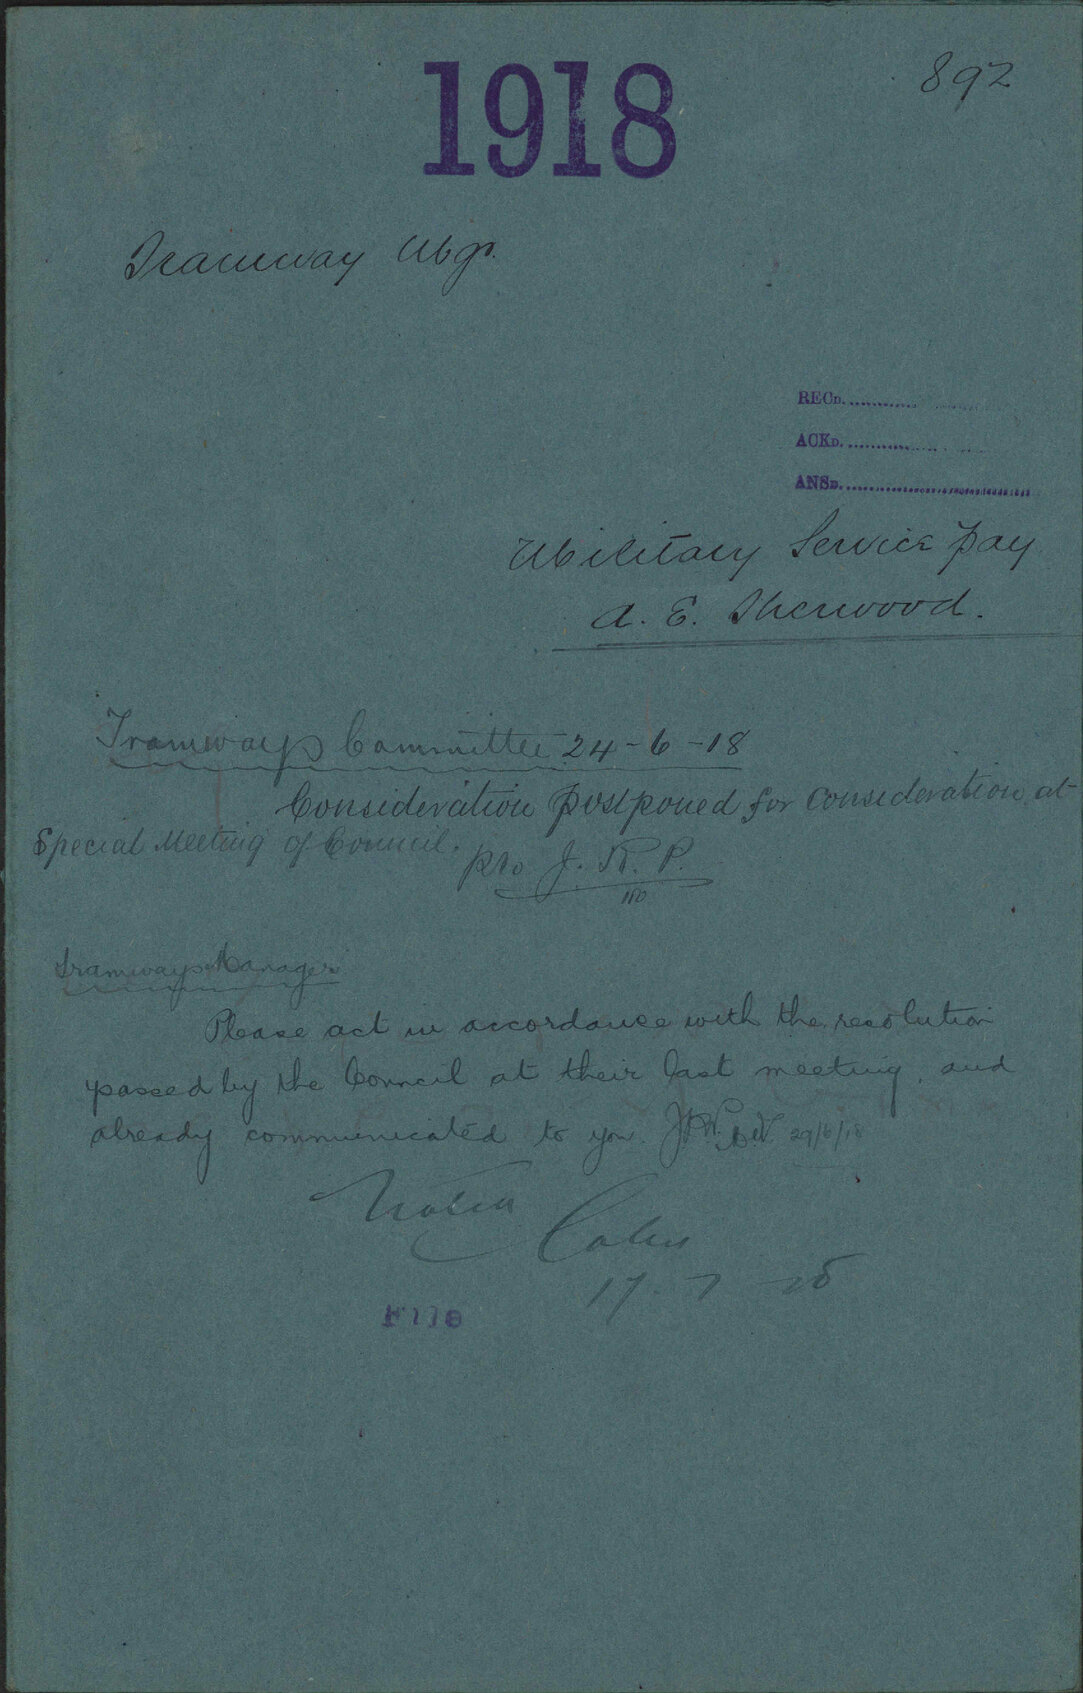 1918
892
Tramway Mgr.
RECD.
ACKD.
ANSD.
Military Service pay
A. E. Sherwood.
Tramways Committee 24-6-18
Consideration postponed for consideration at
Special Meeting of Council.
pro J. R. P.
Tramways Manager
Please act in accordance with the resolution
passed by the Council at their last meeting, and
already communicated to you. 29/6/18
Noted
17-7-